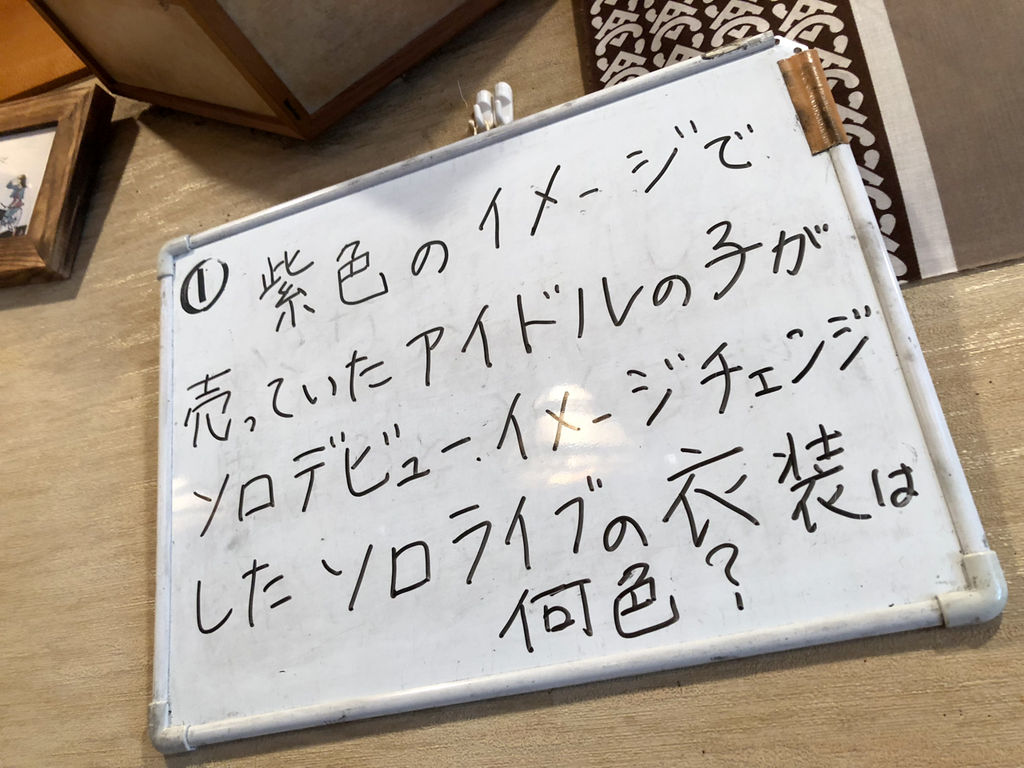 ① 紫色のイメージで
売っていたアイドルの子が
ソロデビュー.イメージチェンジ
したソロライブの衣装は
何色?